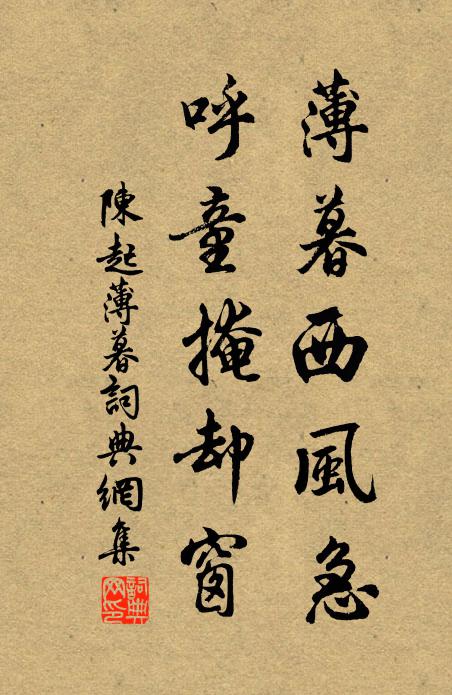 薄暮西風急
呼童掩却窗
陳起薄暮詞典網集
詞典網印